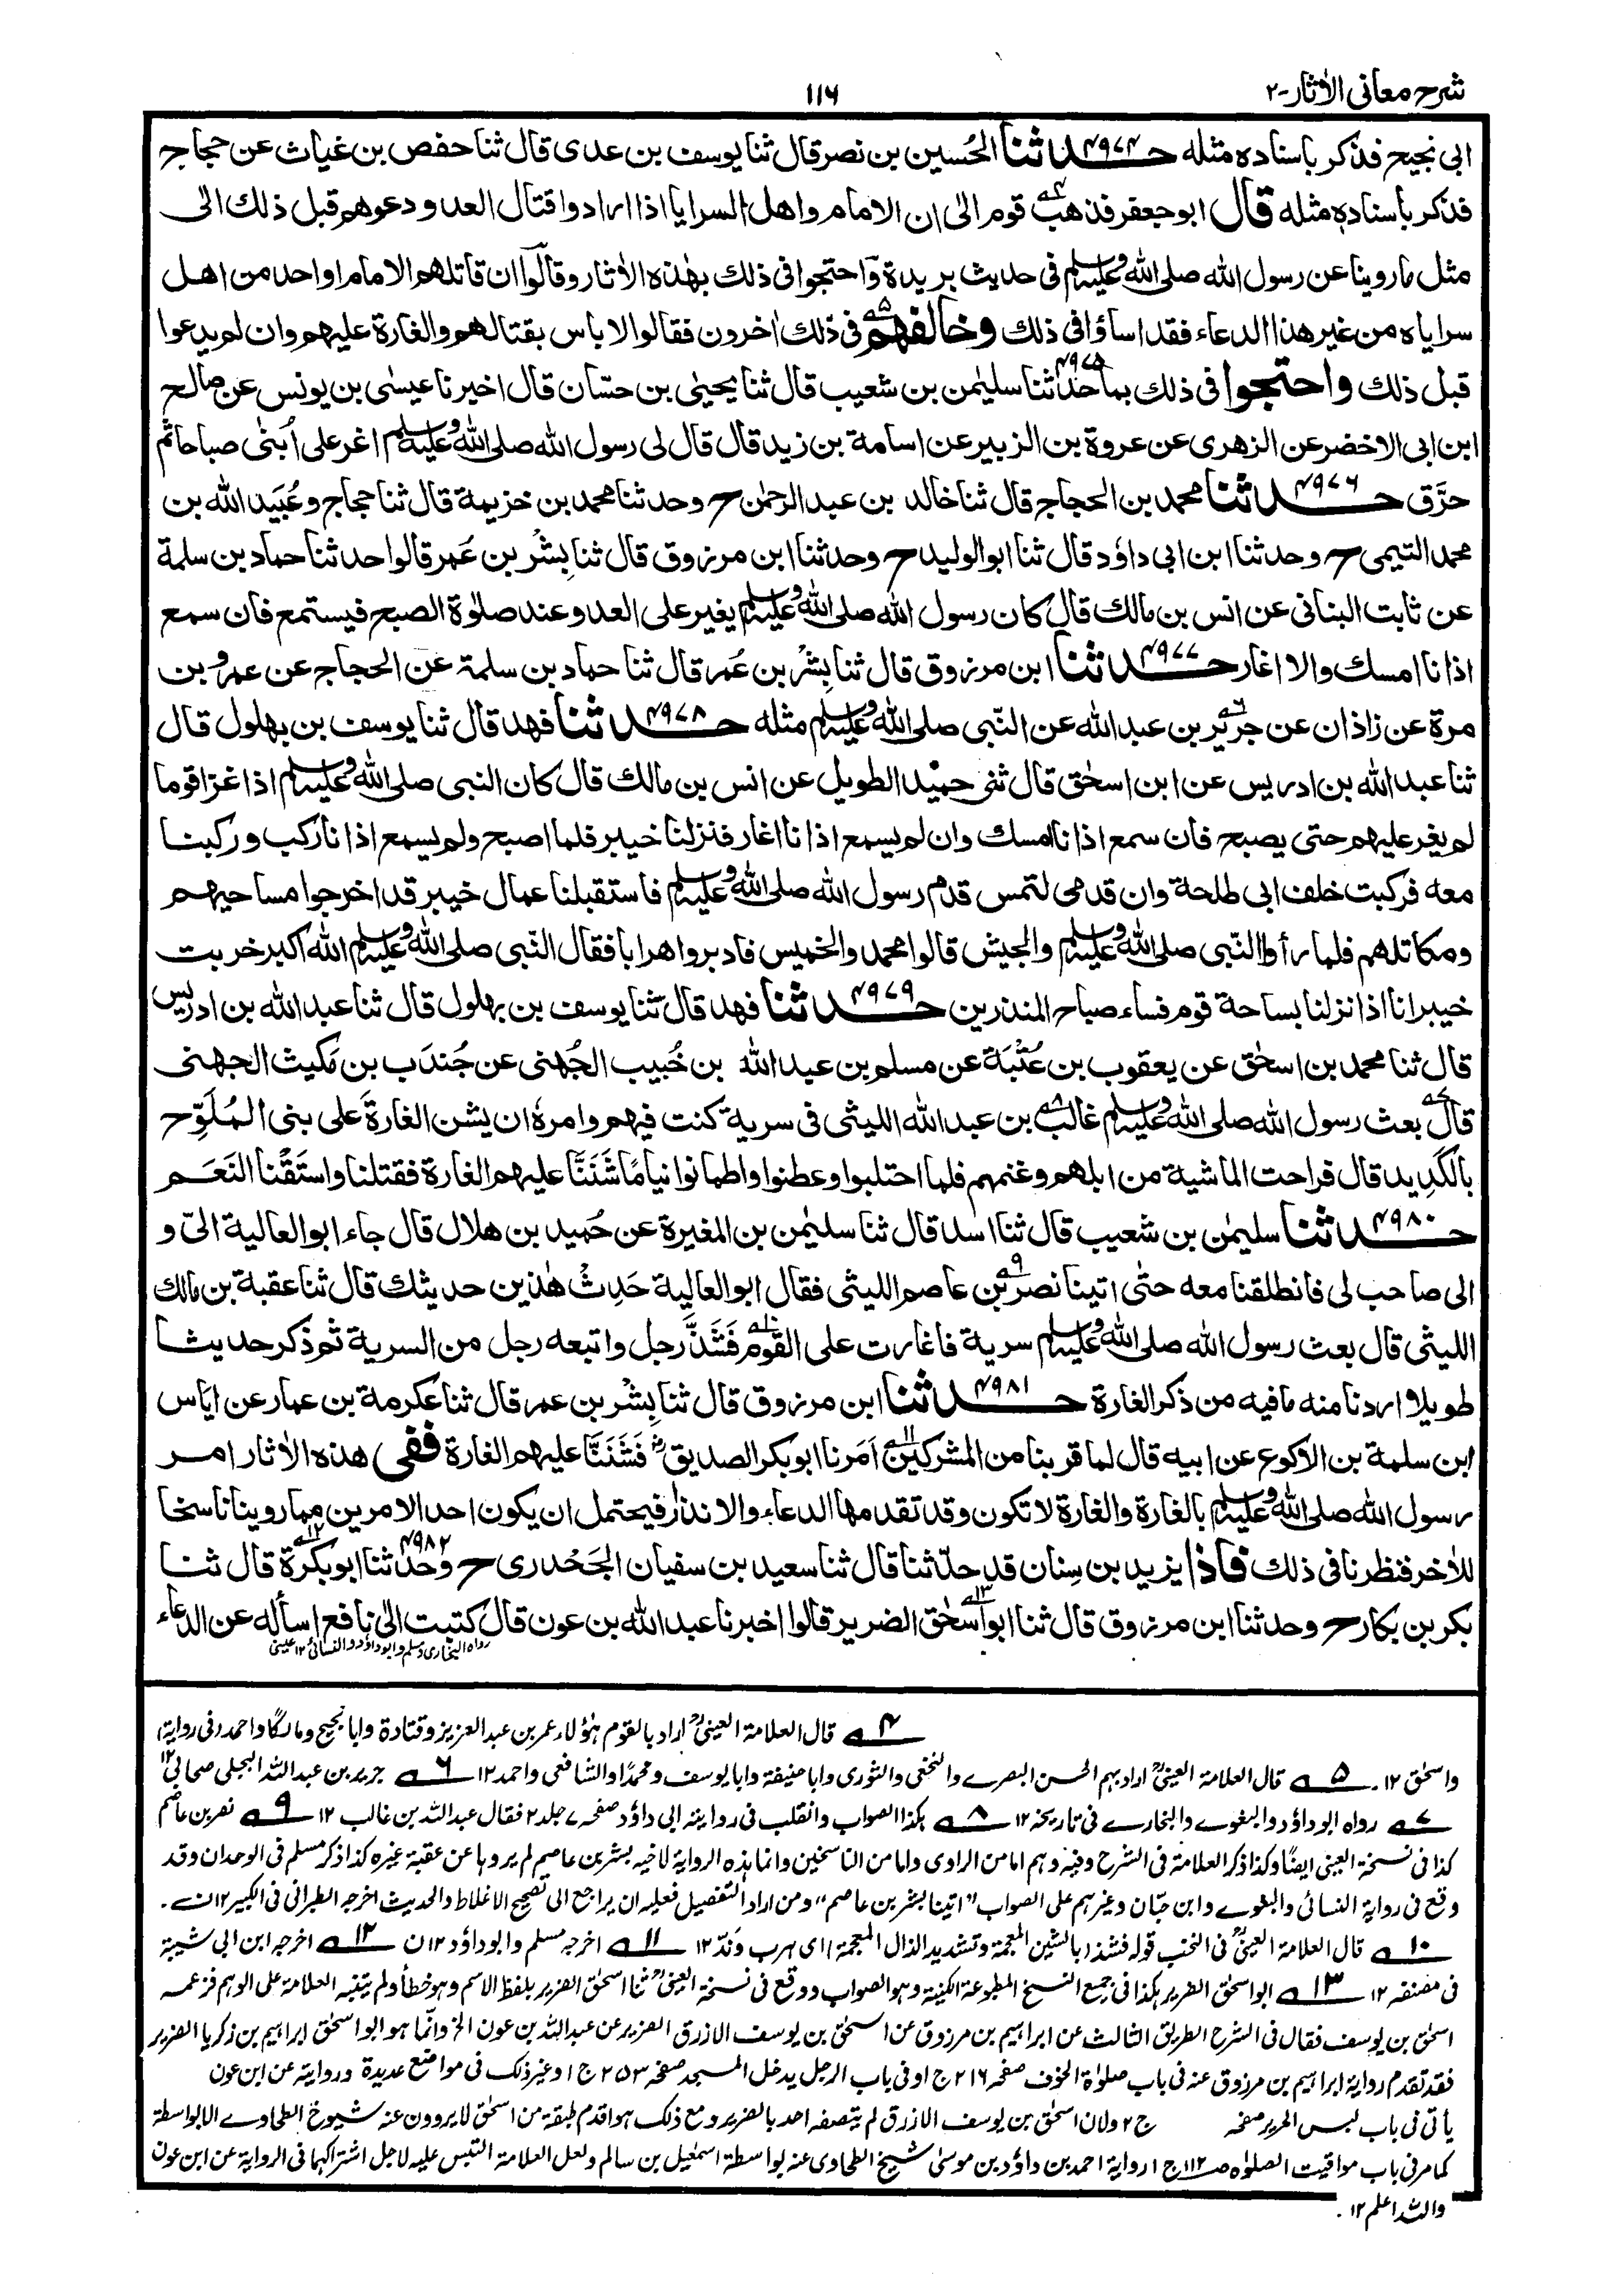 شرح معانى الآثار-۲
۱۱۶
ابى نجيح فذكر باسناده مثله حدثنا ۴۹۷۴ الحُسين بن نصر قال ثنا يوسف بن عدى قال ثنا حفص بن غياث عن حجاج
فذكر بأسناده مثله قال ابو جعفر فذهب قوم الى ان الامام واهل السرايا اذا ارادوا قتال العدو دعوهم قبل ذلك الى
مثل ما روينا عن رسول الله صلى الله عليه وسلم فى حديث بريدة واحتجوا فى ذلك بهذه الأثار وقالوا ان قاتلهم الامام او احد من اهل
سراياه من غير هذا الدعاء فقد اساؤا فى ذلك وخالفهم فى ذلك اخرون فقالوا لا باس بقتالهم والغارة عليهم وان لم يدعوا
قبل ذلك واحتجوا فى ذلك بما حدثنا ۴۹۷۵ سليمٰن بن شعيب قال ثنا يحيىٰ بن حسّان قال اخبرنا عيسى بن يونس عن صالح
ابن ابى الاخضر عن الزهرى عن عروة بن الزبير عن اسامة بن زيد قال قال لى رسول الله صلى الله عليه وسلم اغر على اُبنىٰ صباحا ثم
حرَّق حدثنا ۴۹۷۶ محمد بن الحجاج قال ثنا خالد بن عبد الرحمٰن ح وحدثنا محمد بن خزيمة قال ثنا حجاج وعُبَيد الله بن
محمد التيمى ح وحدثنا ابن ابى داؤد قال ثنا ابو الوليد ح وحدثنا ابن مرزوق قال ثنا بِشْر بن عُمر قالوا حدثنا حماد بن سلمة
عن ثابت البنانى عن انس بن مالك قال كان رسول الله صلى الله عليه وسلم يغير على العدو عند صلوٰة الصبح فيستمع فان سمع
اذانا امسك والا اغار حدثنا ۴۹۷۷ ابن مرزوق قال ثنا بِشْر بن عُمر قال ثنا حماد بن سلمة عن الحجاج عن عمرو بن
مرة عن زاذان عن جرير بن عبد الله عن النّبى صلى الله عليه وسلم مثله حدثنا ۴۹۷۸ فهد قال ثنا يوسف بن بهلول قال
ثنا عبد الله بن ادريس عن ابن اسحٰق قال ثنى حميْد الطويل عن انس بن مالك قال كان النبى صلى الله عليه وسلم اذا غزا قوما
لم يغر عليهم حتى يصبح فان سمع اذانا امسك وان لم يسمع اذانا اغار فنزلنا خيبر فلما اصبح ولم يسمع اذانا ركب وركبنا
معه فركبت خلف ابى طلحة وان قدمى لتمس قدم رسول الله صلى الله عليه وسلم فاستقبلنا عمال خيبر قد اخرجوا مساحيهم
ومكاتلهم فلما رأوا النّبى صلى الله عليه وسلم والجيش قالوا محمد والخميس فادبروا هرابا فقال النّبى صلى الله عليه وسلم الله اكبر خربت
خيبر انا اذا نزلنا بساحة قوم فساء صباح المنذرين حدثنا ۴۹۷۹ فهد قال ثنا يوسف بن بهلول قال ثنا عبد الله بن ادريس
قال ثنا محمد بن اسحٰق عن يعقوب بن عُتْبَة عن مسلم بن عبد الله بن خُبيب الجُهنى عن جُندَب بن مَكيث الجهنى
قال بعث رسول الله صلى الله عليه وسلم غالب بن عبد الله الليثى فى سرية كنت فيهم وامره ان يشن الغارة على بنى المُلَوِّح
بالكَدِيد قال فراحت الماشية من ابلهم وغنمهم فلما احتلبوا وعطنوا واطمانوا نياما شَنَنَّا عليهم الغارة فقتلنا واستَقْنا النَعَم
حدثنا ۴۹۸۰ سليمٰن بن شعيب قال ثنا اسد قال ثنا سليمٰن بن المغيرة عن حُميد بن هلال قال جاء ابو العالية الىّ و
الى صاحب لى فانطلقنا معه حتى اتينا نصر بن عاصم الليثى فقال ابو العالية حَدِثْ هٰذين حديثك قال ثنا عقبة بن مالك
الليثى قال بعث رسول الله صلى الله عليه وسلم سرية فاغارت على القوم فَشَذَّ رجل واتبعه رجل من السرية ثم ذكر حديثا
طويلا اردنا منه ما فيه من ذكر الغارة حدثنا ۴۹۸۱ ابن مرزوق قال ثنا بِشْر بن عمر قال ثنا عكرمة بن عمار عن اياس
ابن سلمة بن الاكوع عن ابيه قال لما قربنا من المشركين اَمَرنا ابو بكر الصديق فَشَنَنَّا عليهم الغارة ففى هذه الأثار امر
رسول الله صلى الله عليه وسلم بالغارة والغارة لا تكون وقد تقدمها الدعاء والانذار فيحتمل ان يكون احد الامرين مما روينا ناسخا
للأخر فنظرنا فى ذلك فاذا يزيد بن سِنان قد حدّثنا قال ثنا سعيد بن سفيان الجَحْدرى ح وحدثنا ۴۹۸۲ ابو بكرة قال ثنا
بكر بن بكار ح وحدثنا ابن مرزوق قال ثنا ابو اسحٰق الضرير قالوا اخبرنا عبد الله بن عون قال كتبت الى نافع اسأله عن الدعاء
رواه البخارى ومسلم وابو داؤد والنسائى ۱۲ عينى
۴ قال العلامة العينىؒ اراد بالقوم هٰؤلاء عمر بن عبد العزيز وقتادة وابا نجيح ومالكًا واحمد (فى رواية)
واسحٰق ۱۲. ۵ قال العلامة العينىؒ اراد بهم الحسن البصرے والنخعى والثورى وابا حنيفة وابا يوسف ومحمدًا والشافعى واحمد ۱۲ ۶ جرير بن عبد الله البجلى صحابى ۱۲
۷ رواه ابو داؤد والبغوے والبخارے فى تاريخه ۱۲ ۸ هكذا الصواب وانقلب فى رواية ابى داؤد صفحه ۷ جلد ۲ فقال عبد الله بن غالب ۱۲ ۹ نصر بن عاصم
كذا فى نسخة العينى ايضًا وكذا ذكر العلامة فى الشرح وفيه وهم اما من الراوى واما من الناسخين وانما هذه الرواية لاخيه بشر بن عاصم لم يروها عن عقبة غيره كذا ذكر مسلم فى الوحدان وقد
وقع فى رواية النسائى والبغوے وابن حبّان وغيرهم على الصواب "اتينا بشر بن عاصم" ومن اراد التفصيل فعليه ان يراجع الى تصحيح الاغلاط والحديث اخرجه الطبرانى فى الكبير ۱۲ ن.
۱۰ قال العلامة العينىؒ فى النخب قوله فشذ (بالشين المعجمة وتشديد الذال المعجمة) اى هرب وندّ ۱۲ ۱۱ اخرجه مسلم وابو داؤد ۱۲ ن ۱۲ اخرجه ابن ابى شيبة
فى مصنفه ۱۲ ۱۳ ابو اسحٰق الضرير هكذا فى جميع النسخ المطبوعة الكنية وهو الصواب ووقع فى نسخة العينىؒ ثنا اسحٰق الضرير بلفظ الاسم وهو خطأ ولم يتنبه العلامة على الوهم فزعمه
اسحٰق بن يوسف فقال فى الشرح الطريق الثالث عن ابراهيم بن مرزوق عن اسحٰق بن يوسف الازرق الضرير عن عبد الله بن عون الخ وانما هو ابو اسحٰق ابراهيم بن زكريا الضرير
فقد تقدم رواية ابراهيم بن مرزوق عنه فى باب صلوٰة الخوف صفحه ۲۱۶ ج ۱ وفى باب الرجل يدخل المسجد صفحه ۲۵۳ ج ۱ وغير ذلك فى مواضع عديدة وروايته عن ابن عون
يأتى فى باب لبس الحرير صفحه ج ۲ ولان اسحٰق بن يوسف الازرق لم يتصفه احد بالضرير ومع ذلك هو اقدم طبقة من اسحٰق لا يروون عنه شيوخ الطحاوے الا بواسطة
كما مر فى باب مواقيت الصلوٰة صـ ۱۱۲ ج ۱ رواية احمد بن داؤد بن موسىٰ شيخ الطحاوى عنه بواسطة اسمٰعيل بن سالم ولعل العلامة التبس عليه لاجل اشتراكهما فى الرواية عن ابن عون
والله اعلم ۱۲.